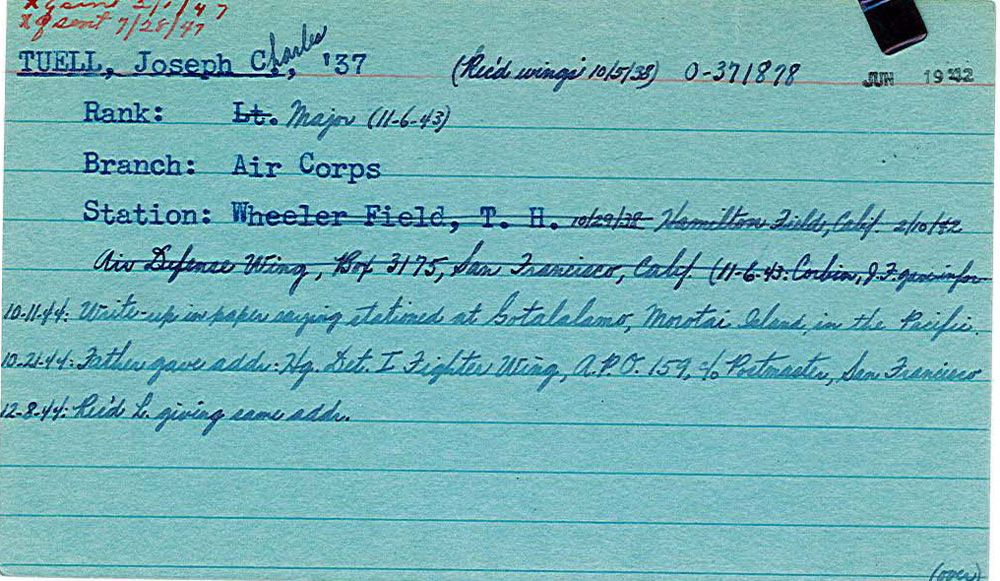 xq sent 2/1/47
xq sent 7/28/47
TUELL, Joseph C., Charles '37 (Rec'd wings 10/5/38) O-371878 JUN 1942
Rank: Lt. Major (11-6-43)
Branch: Air Corps
Station: Wheeler Field, T. H. 10/29/38 Hamilton Field, Calif. 2/10/42
Air Defense Wing, Box 3175, San Francisco, Calif. (11-6-43: Corbin, J.F. gave infor
10-11-44: Write-up in paper saying stationed at Gotalalamo, Morotai Island, in the Pacific.
10-21-44: Father gave addr: Hq. Det. I Fighter Wing, A.P.O. 159, c/o Postmaster, San Francisco
12-8-44: Rec'd L. giving same addr.
(over)